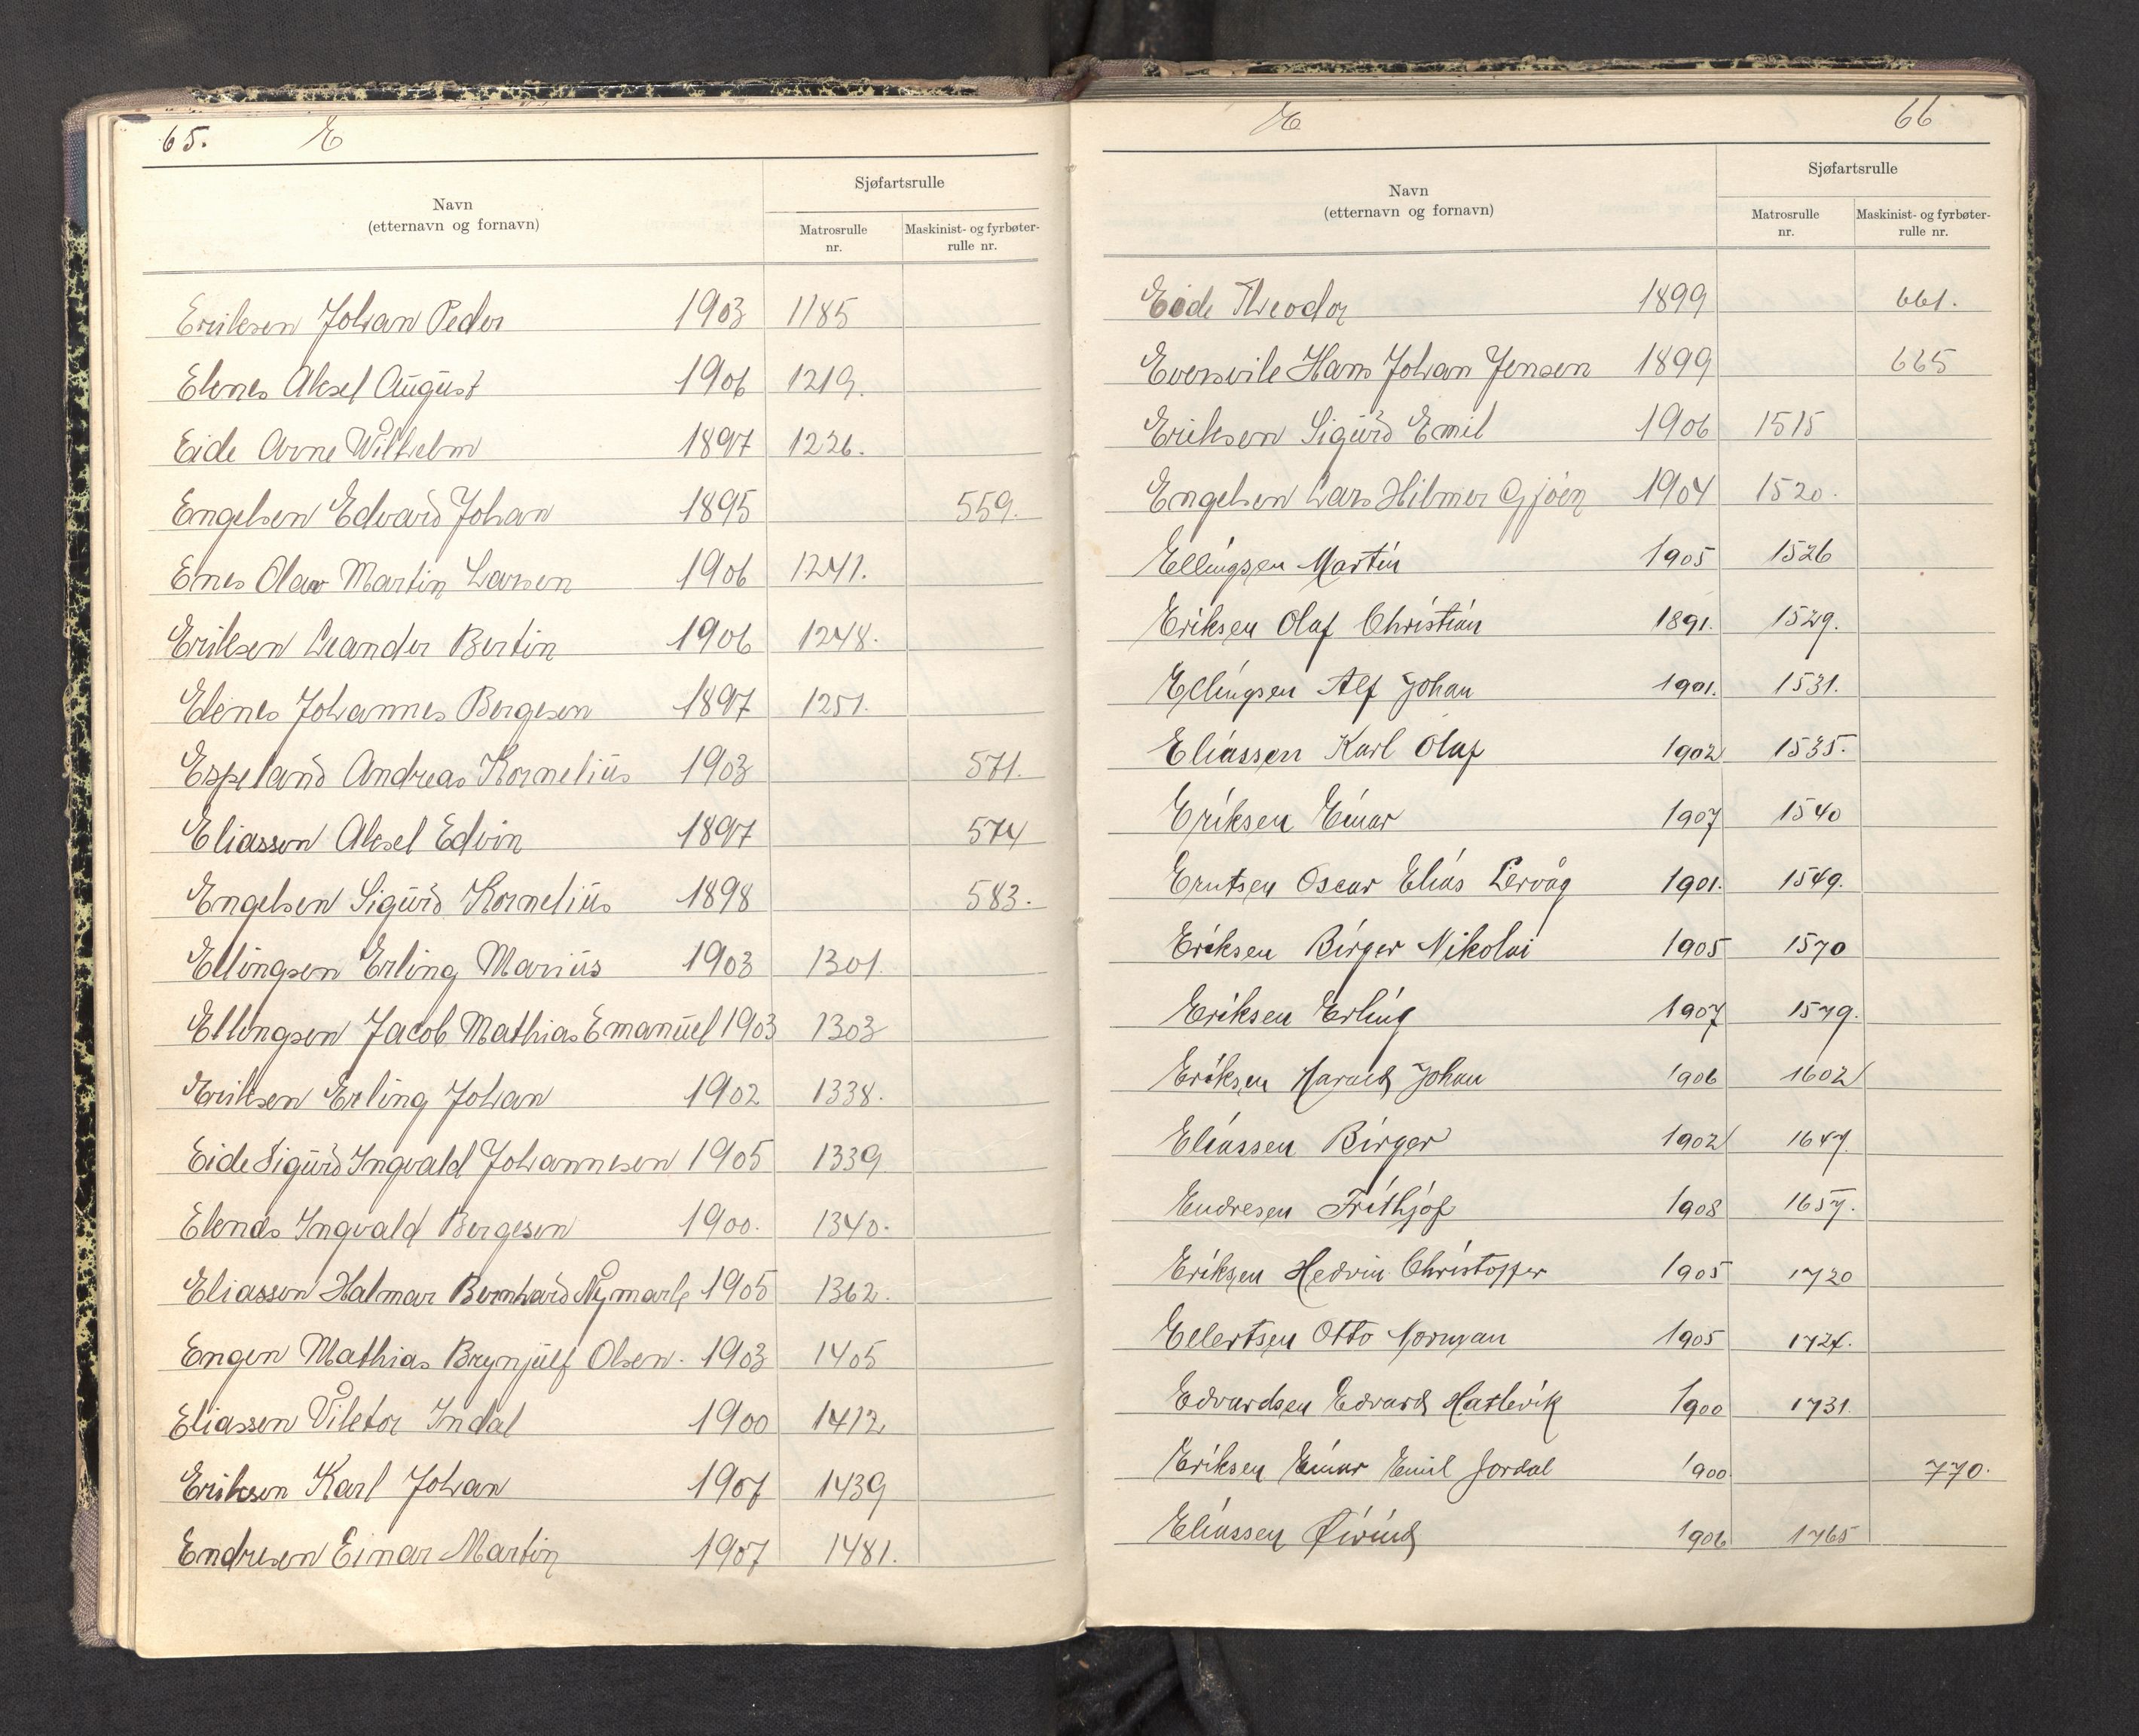 65. E
Sjøfartsrulle
Navn
(etternavn og fornavn)
Matrosrulle
nr.
Maskinist- og fyrbøter-
rulle nr.
Eriksen Johan Peder 1903 1185
Eknes Aksel August 1906 1219.
Eide Arne Wilhelm 1897 1226.
Engelsen Edvard Johan 1895 559.
Enes Olav Martin Larsen 1906 1241.
Eriksen Leander Bertin 1906 1248.
Eknes Johannes Børgesen 1897 1251.
Espeland Andreas Kornelius 1903 571.
Eliassen Aksel Edvin 1897 574
Engelsen Sigurd Kornelius 1898 583.
Ellingsen Erling Marius 1903 1301.
Ellingsen Jacob Mathias Emanuel 1903 1303
Eriksen Erling Johan 1902 1338.
Eide Sigurd Ingvald Johannesen 1905 1339
Eknes Ingvald Børgesen 1900. 1340.
Eliassen Halmar Bernhard Nymark 1905 1362.
Engen Mathias Brynjulf Olsen. 1903 1405
Eliassen Viktor Indal 1900 1412
Eriksen Karl Johan 1907 1439
Endresen Einar Martin 1907 1481.
E 66
Sjøfartsrulle
Navn
(etternavn og fornavn)
Matrosrulle
nr.
Maskinist- og fyrbøter-
rulle nr.
Eide Theodor 1899 661.
Evensvik Hans Johan Jensen 1899 665
Eriksen Sigurd Emil 1906 1515
Engelsen Lars Hilmer Gjøen 1904 1520.
Ellingsen Martin 1905 1526
Eriksen Olaf Christian 1891. 1529.
Ellingsen Alf Johan 1901. 1531.
Eliassen Karl Olaf 1902 1535.
Eriksen Einar 1907 1540
Erntsen Oscar Elias Lervåg 1901. 1549.
Eriksen Birger Nikolai 1905 1570
Eriksen Erling 1907 1579.
Eriksen Harald Johan 1906 1602
Eliassen Birger 1902 1647.
Endresen Frithjof 1908 1657.
Eriksen Hedvin Christoffer 1905 1720
Ellertsen Otto Norman 1905 1724.
Edvardsen Edvard Hatlevik 1900 1731.
Eriksen Einar Emil Jordal 1900 770.
Eliassen Øivind 1906 1765